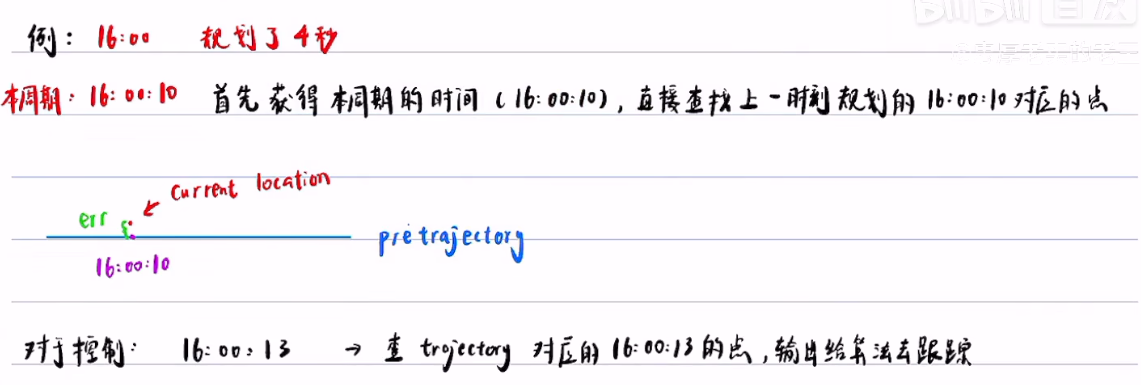 例： 16:00 规划了4秒
本周期：16:00:10 首先获得本周期的时间（16:00:10），直接查找上一时刻规划的16:00:10对应的点
current location
err
pre trajectory
16:00:10
对于控制： 16:00:13 → 查 trajectory 对应的16:00:13的点，输出给算法去跟踪